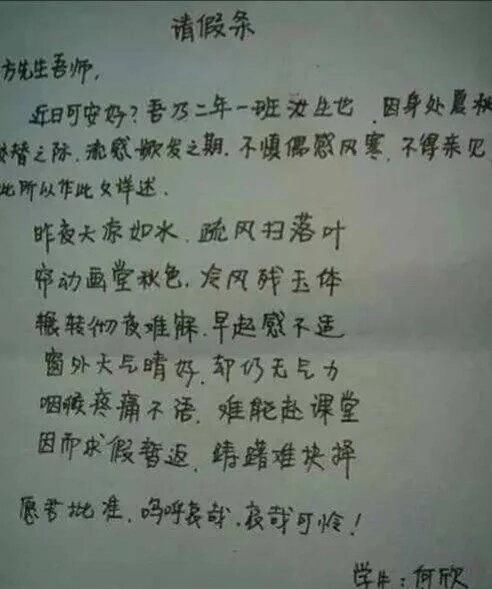 请假条
方先生吾师,
近日可安好?吾乃二年一班汝生也,因身处夏秋
替之际,流感频发之期.不慎偶感风寒,不得亲见
此所以作此文详述.
昨夜天凉如水,疏风扫落叶
帘动画堂秋色,冷风残玉体
辗转彻夜难寐,早起感不适
窗外天气晴好,却仍无气力
咽喉疼痛不语,难能赴课堂
因而求假暂返,踌躇难抉择
愿君批准,呜呼哀哉,哀哉可怜!
学生:何欣